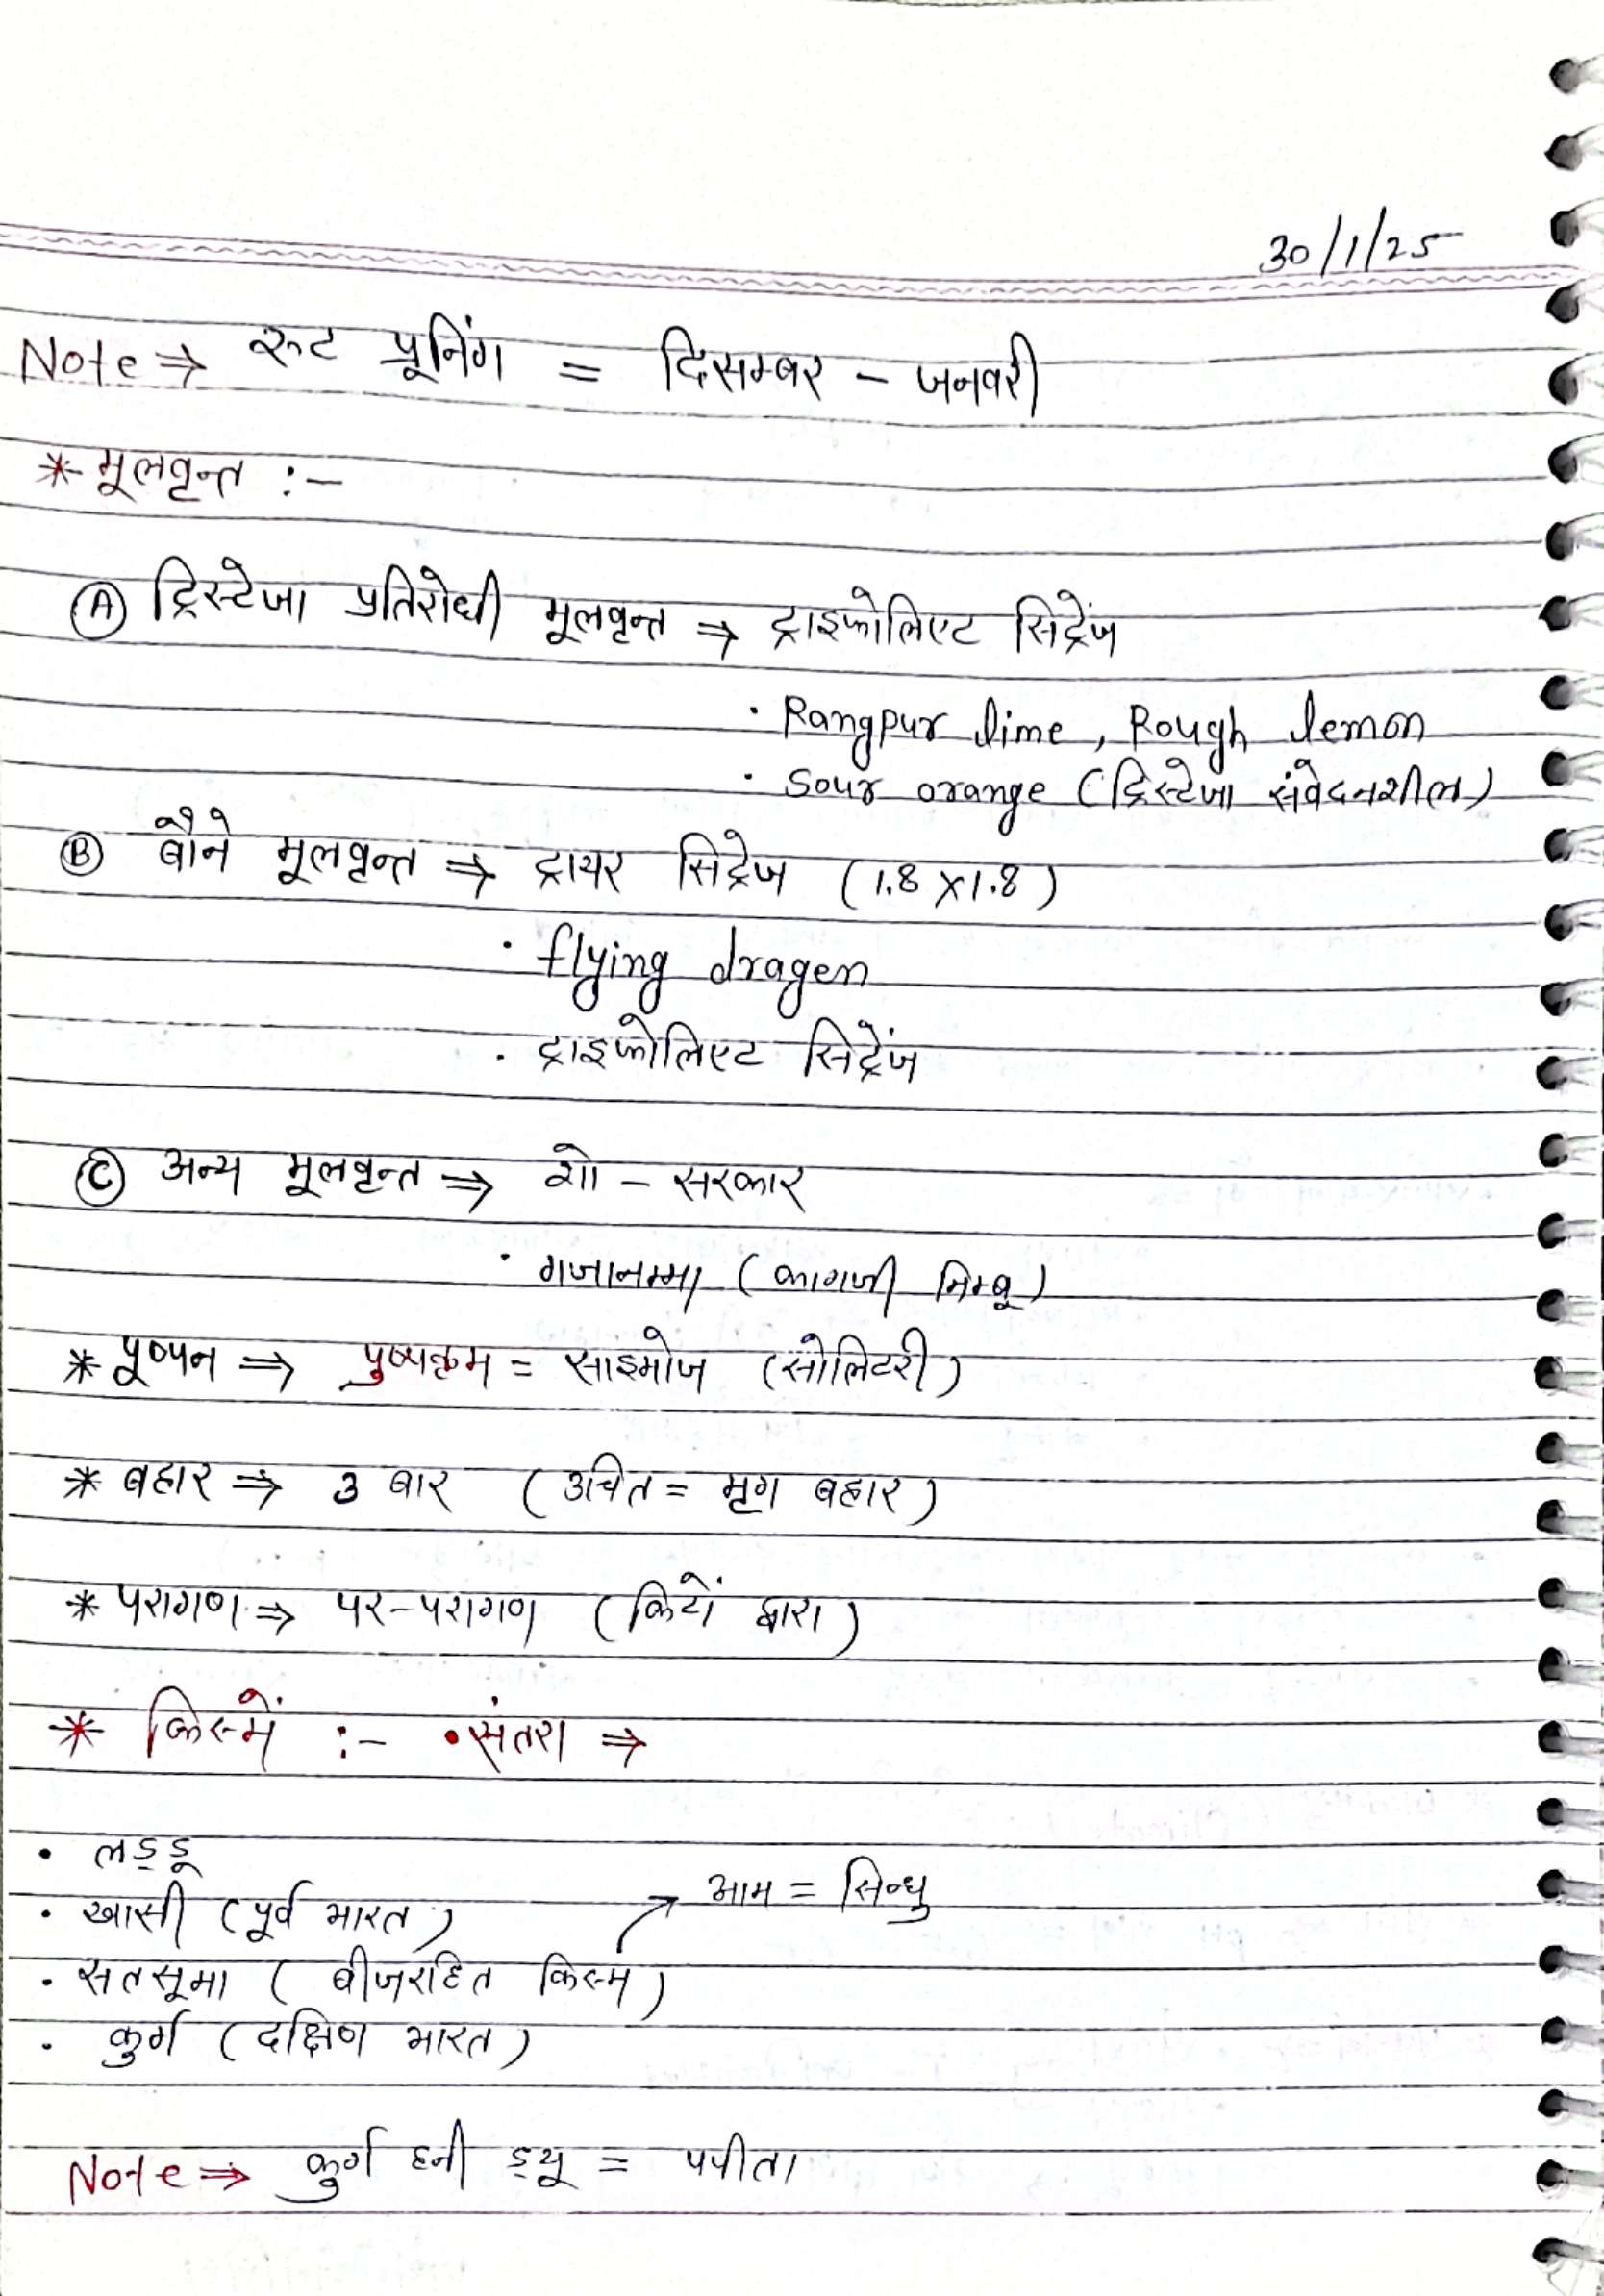 30/1/25
Note ⇒ रुट प्रूनिंग = दिसम्बर - जनवरी
* मूलवृन्त :-
Ⓐ ट्रिस्टेजा प्रतिरोधी मूलवृन्त ⇒ ट्राइफोलिएट सिट्रेंज
· Rangpur lime, Rough lemon
· Sour orange (ट्रिस्टेजा संवेदनशील)
Ⓑ बौने मूलवृन्त ⇒ ट्रायर सिट्रेज (1.8 X 1.8)
· flying dragen
· ट्राइफोलिएट सिट्रेंज
Ⓒ अन्य मूलवृन्त ⇒ शो - सरकार
· गजानम्मा (कागजी निम्बू)
* पूष्पन ⇒ पुष्पक्रम = साइमोज (सोलिटरी)
* बहार ⇒ 3 बार (उचित = मृग बहार)
* परागण ⇒ पर-परागण (किटों द्वारा)
* किस्में :- • संतरा ⇒
• लड्डू
· खासी (पूर्व भारत) आम = सिन्धु
· सतसूमा (बीजरहित किस्म)
· कुर्ग (दक्षिण भारत)
Note ⇒ कुर्ग हनी ड्यू = पपीता